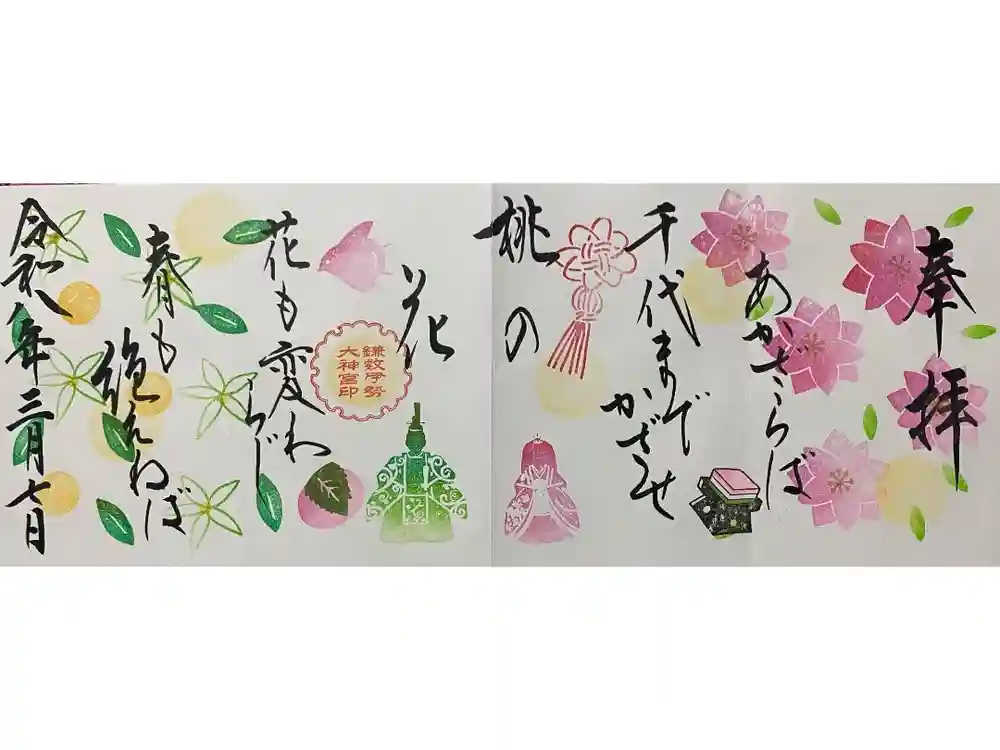 奉拝
あかざらば
千代まで
かざせ
桃の
花
鎌數伊勢
大神宮印
花も変わ
らじ
春も
絶えねば
令和八年三月七日